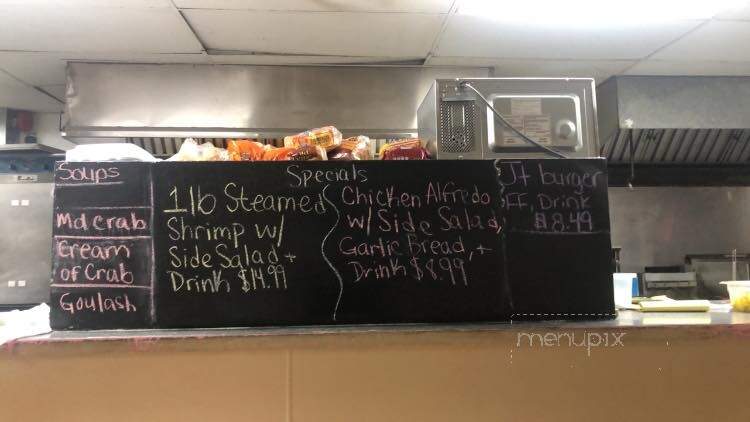 Soups
Md crab
Cream
of Crab
Goulash
Specials
1 lb Steamed
Shrimp w/
Side Salad +
Drink $14.99
Chicken Alfredo
w/ Side Salad,
Garlic Bread, +
Drink $8.99
Jt burger
FF, Drink
$8.49
menupix